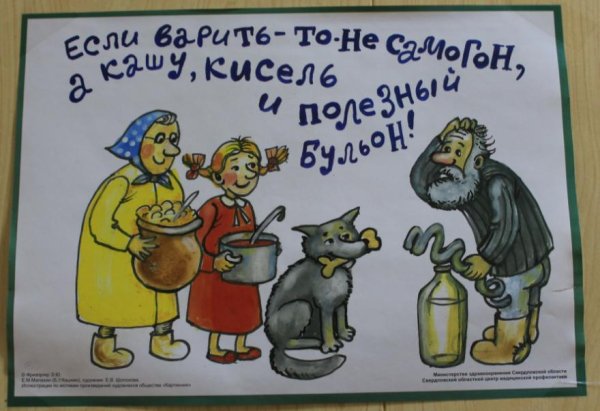 Если варить - то не самогон,
а кашу, кисель
и полезный
бульон!
Министерство здравоохранения Свердловской области
Свердловский областной центр медицинской профилактики
Иллюстрации по мотивам произведений художников общества «Картинник»